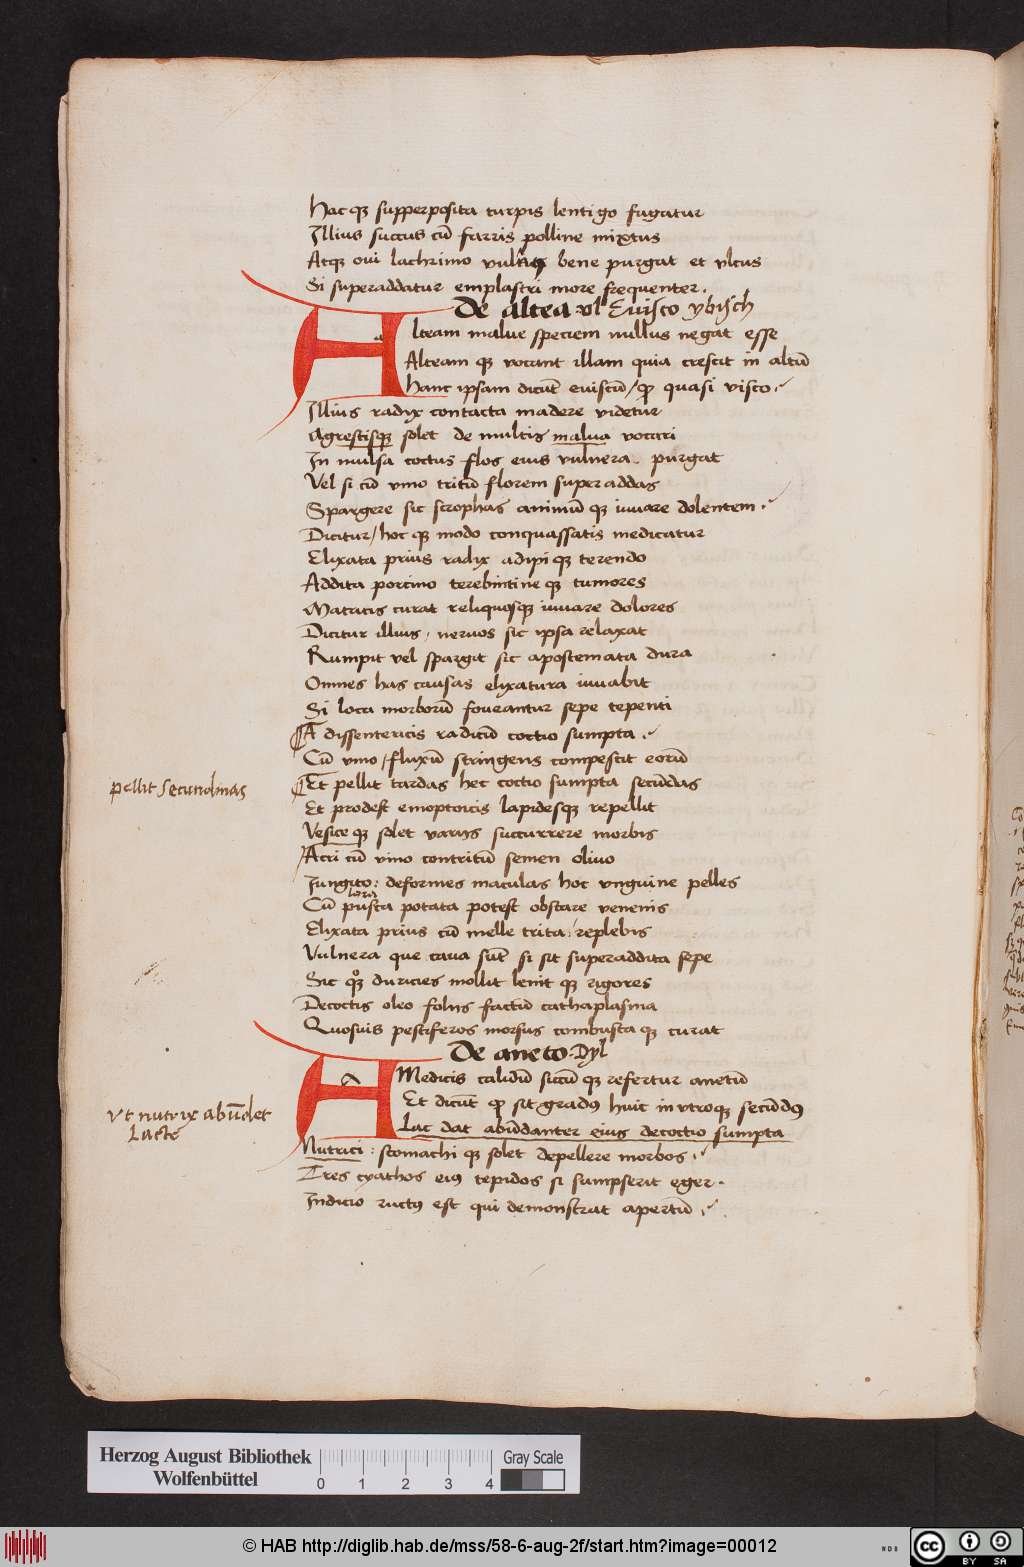 Hac qꝫ supperposita turpis lentigo fugatur
Illius succus cū farris polline mixtus
Atqꝫ oui lachrimo bene purgat et vlcus
Si superaddatur emplastri more frequenter.
De altea vl Euisco ybisch
Alteam malue speciem nullus negat esse
Alteam qꝫ vocant illam quia crescit in altū
Hanc ipsam dicūt euiscū / ꝙ quasi visco
Illius radix contacta madere videtur
Agrestisqꝫ solet de multis malua vocari
In mulsa coctus flos eius vulnera purgat
Vel si cū vino tritū florem superaddas
Spargere sic scrophas animū qꝫ iuuare dolentem
Dicitur / hoc qꝫ modo conquassatis medicatur
Elixata prius radix adipi qꝫ terendo
Addita porcino terebintine qꝫ tumores
Matricis curat reliquosqꝫ iuuare dolores
Dicitur illius, neruos sic ipsa relaxat
Rumpit vel spargit sic apostemata dura
Omnes has causas elixatura iuuabit
Si loca morborū foueantur sepe tepenti
A dissentericis radicū coctio sumpta
Cū vino / fluxū stringens compescit eorū
Et pellit tardas hec coctio sumpta secūdas
pellit secundinas
Et prodest emoptoicis lapidesqꝫ repellit
Vesice qꝫ solet varijs succurrere morbis
Acri cū vino contritū semen oliuo
Iungito: deformes maculas hoc vnguine pelles
Cū pusca potata potest obstare venenis
Elixata prius cū melle trita: replebis
Vulnera que caua sūt si sit superaddita sepe
Sic duricies mollit lenit qꝫ rigores
Decoctis oleo folijs factū cathaplasma
Quosuis pestiferos morsus combusta qꝫ curat
De aneto. Dyl
A Medicis calidū siccū qꝫ refertur anetū
Et dicūt ꝙ sit gradꝰ huic in vtroqꝫ secūdꝰ
Lac dat abūdanter eius decoctio sumpta
vt nutrix abūdet
Lacte
Nutrici: stomachi qꝫ solet depellere morbos
Tres cyathos eiꝰ tepidos si sumpserit eger.
Indicio ructꝰ est qui demonstrat apertū
Herzog August Bibliothek
Wolfenbüttel
0 1 2 3 4
Gray Scale
© HAB http://diglib.hab.de/mss/58-6-aug-2f/start.htm?image=00012
cc BY SA